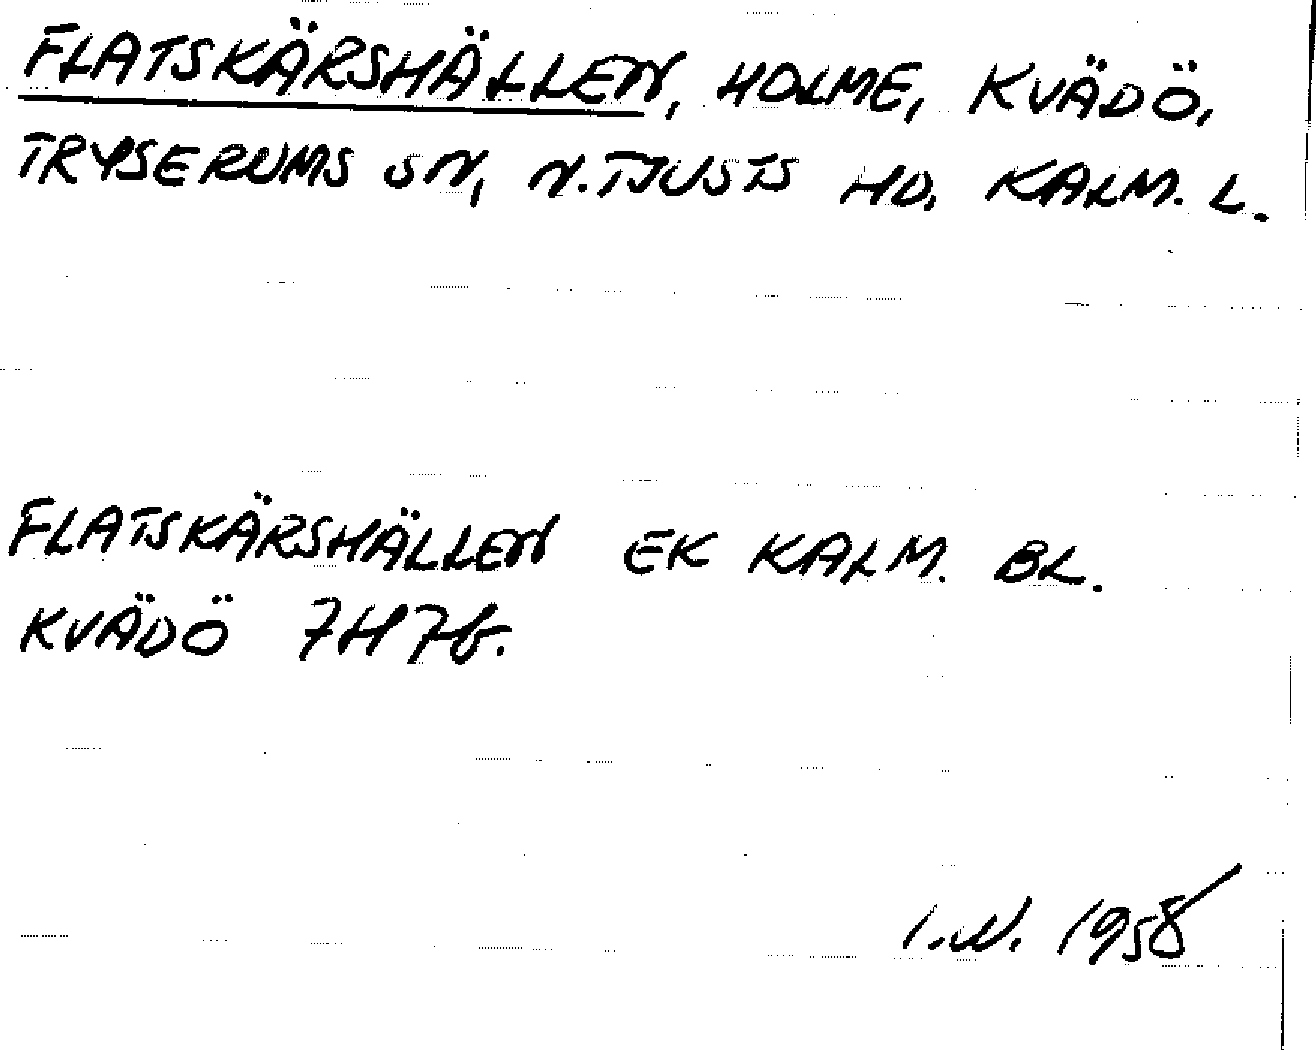 FLATSKÄRSHÄLLEN, HOLME, KVÄDÖ,
TRYSERUMS SN, N. TJUSTS HD, KALM. L.
FLATSKÄRSHÄLLEN EK KALM. BL.
KVÄDÖ 7H7b.
I.N. 1958